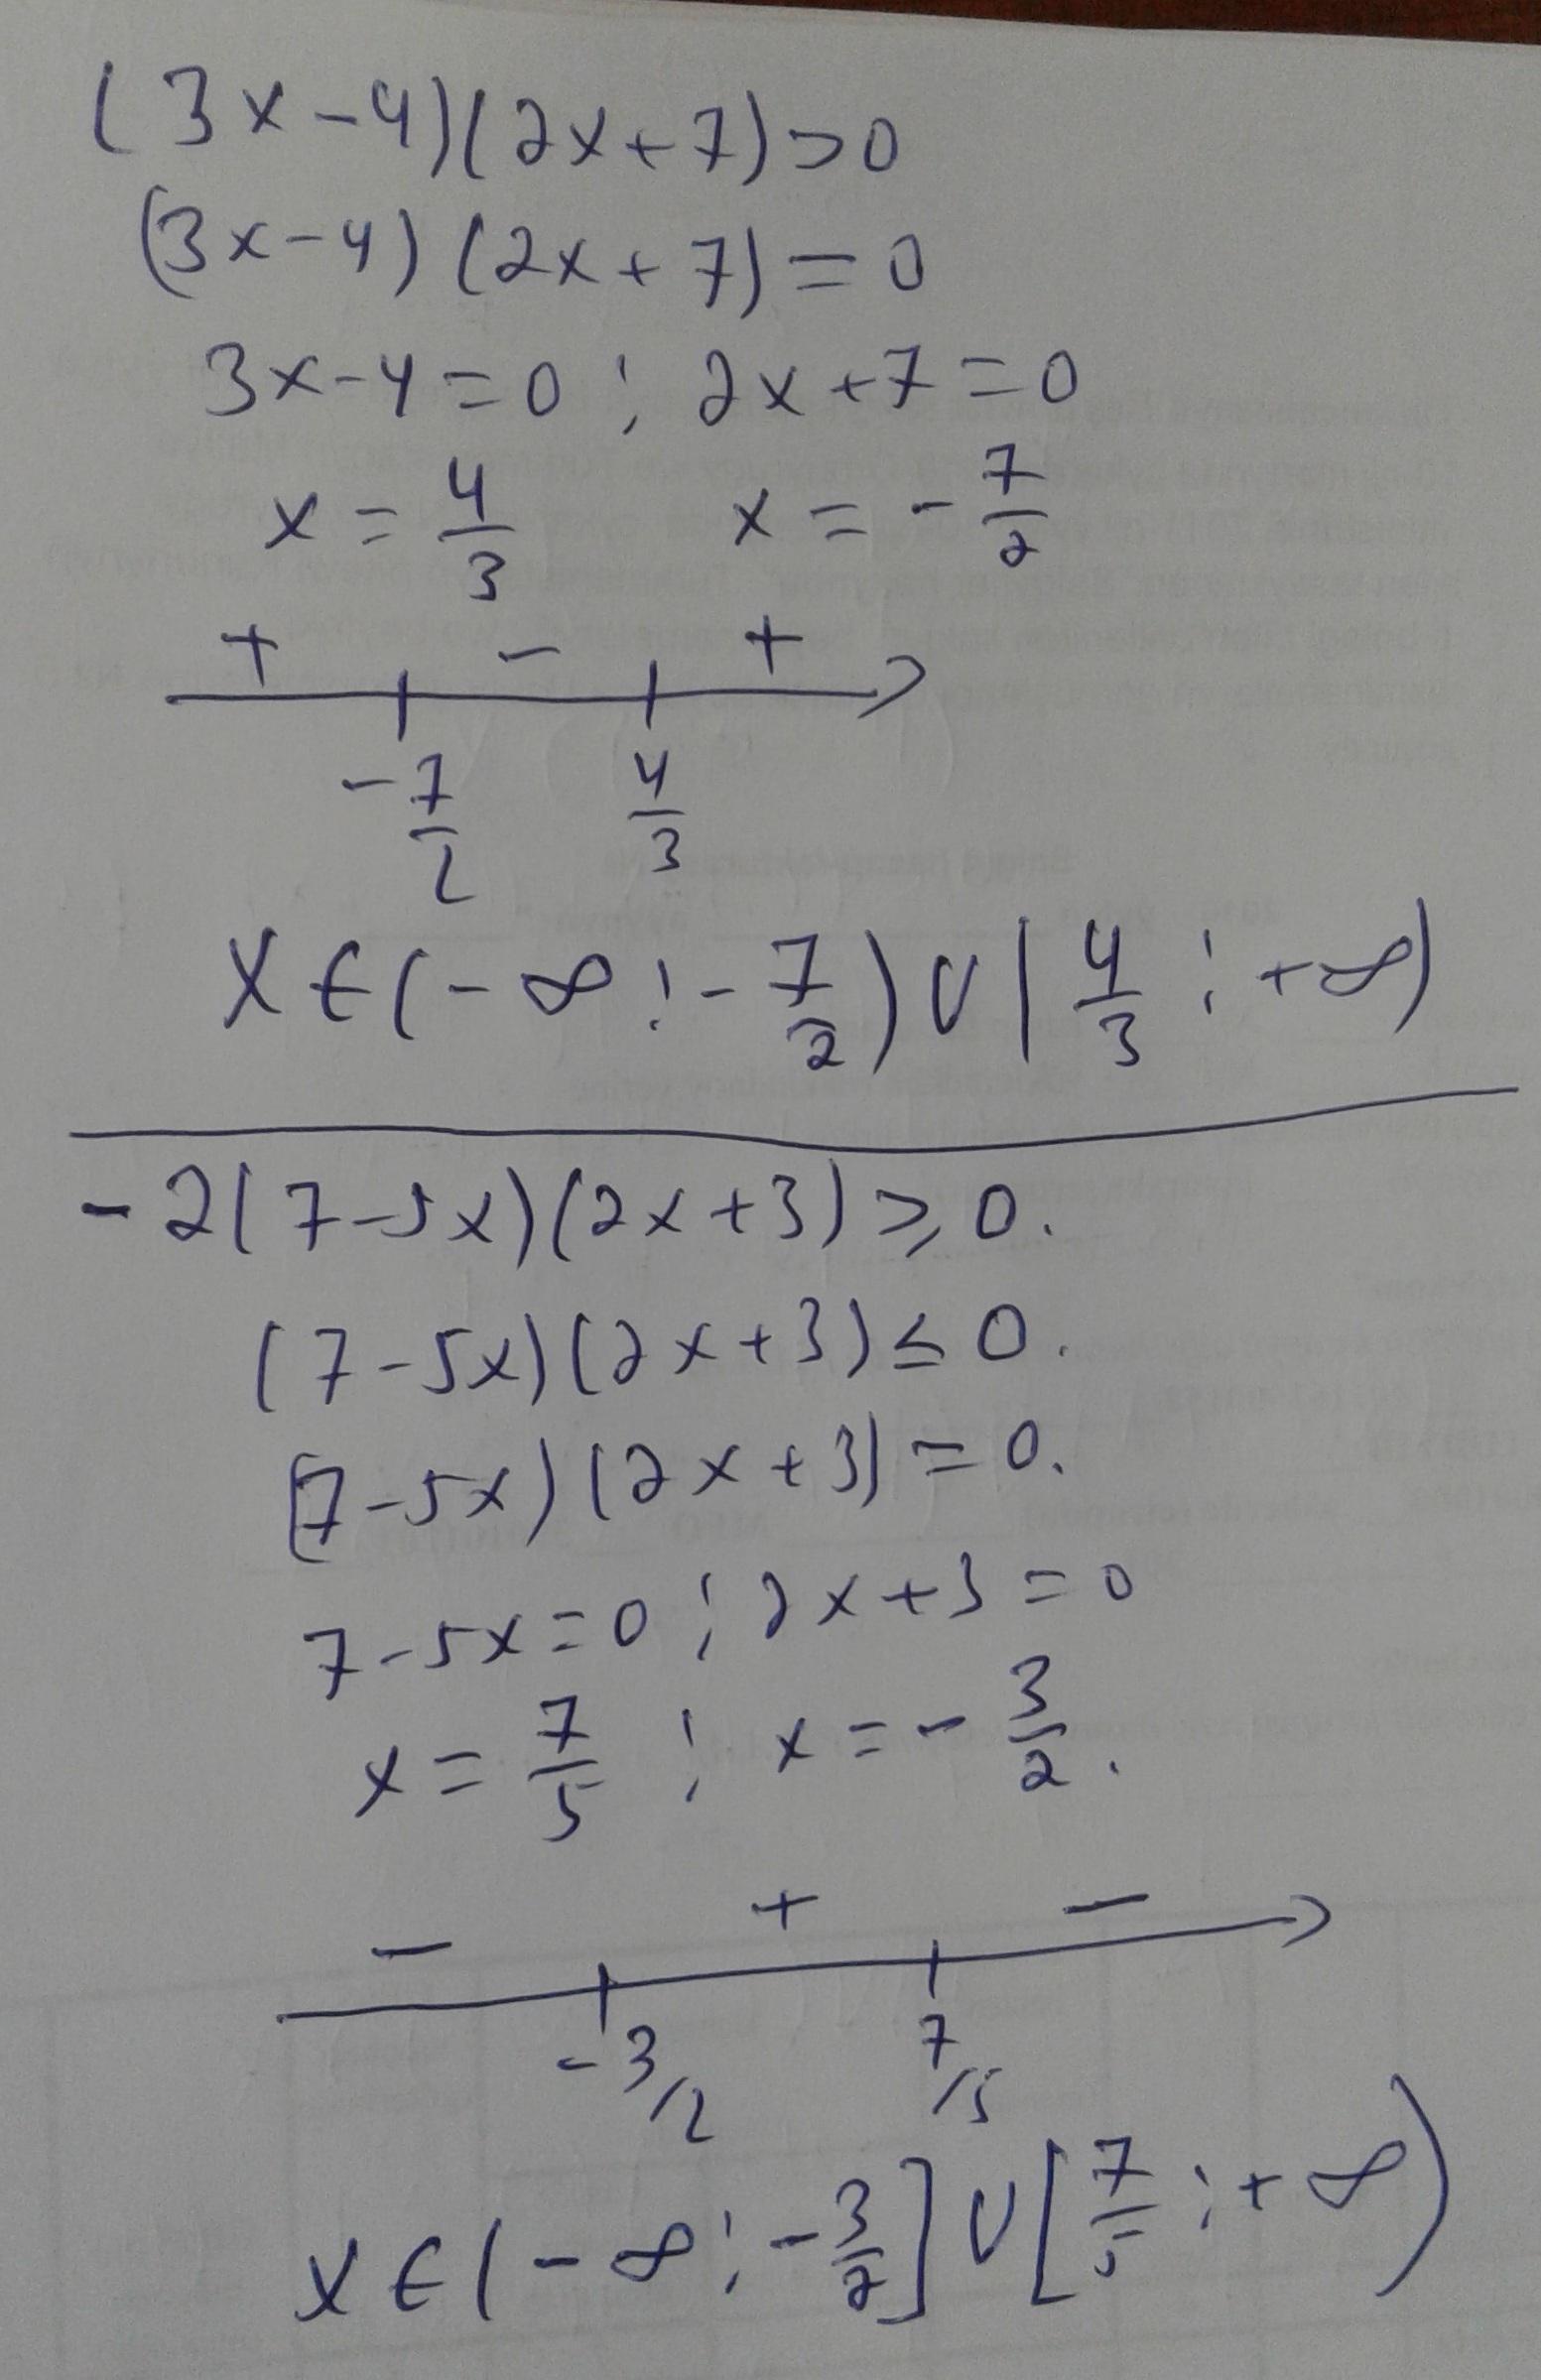 (3x-4)(2x+7)>0
(3x-4)(2x+7)=0
3x-4=0; 2x+7=0
x=4/3 x=-7/2
+ - +
-7/2 4/3
x∈(-∞;-7/2)∪(4/3;+∞)
-2(7-5x)(2x+3)≥0.
(7-5x)(2x+3)≤0.
(7-5x)(2x+3)=0.
7-5x=0; 2x+3=0
x=7/5; x=-3/2.
- + -
-3/2 7/5
x∈(-∞;-3/2]∪[7/5;+∞)